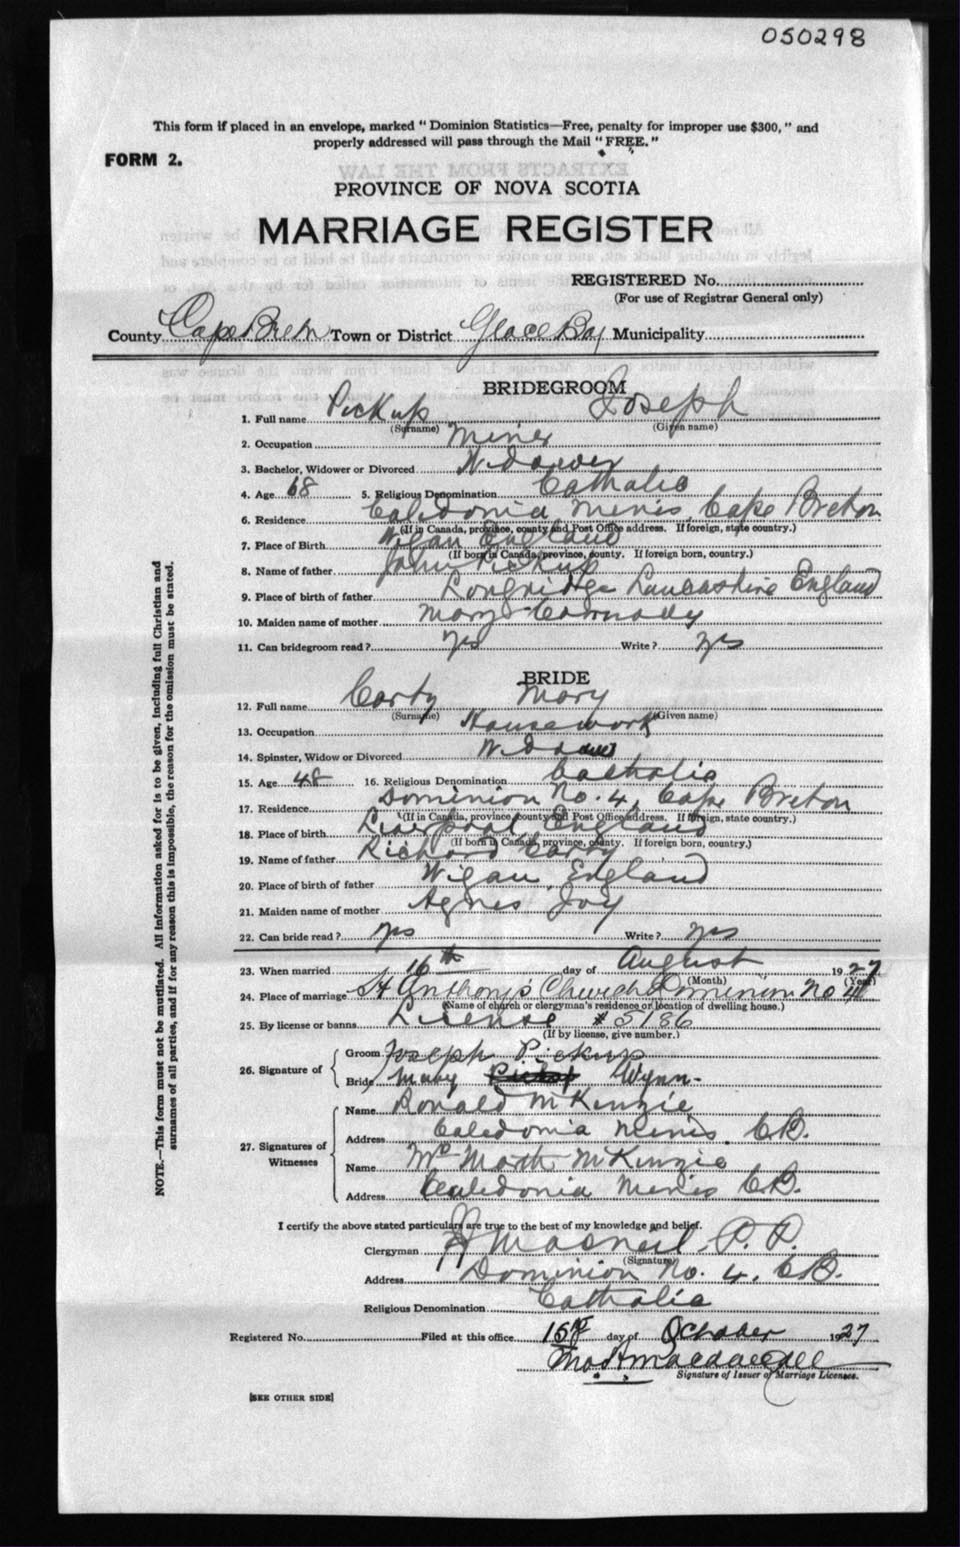 050298
This form if placed in an envelope, marked "Dominion Statistics—Free, penalty for improper use $300," and
properly addressed will pass through the Mail "FREE."
FORM 2.
PROVINCE OF NOVA SCOTIA
MARRIAGE REGISTER
REGISTERED No.
(For use of Registrar General only)
County Cape Breton Town or District Glace Bay Municipality
BRIDEGROOM
1. Full name Pickup Joseph
(Surname) (Given name)
2. Occupation Miner
3. Bachelor, Widower or Divorced Widower
4. Age 68 5. Religious Denomination Catholic
6. Residence Caledonia Mines Cape Breton
(If in Canada, province, county and Post Office address. If foreign, state country.)
7. Place of Birth Wigan England
(If born in Canada, province, county. If foreign born, country.)
8. Name of father John Pickup
9. Place of birth of father Longridge Lancashire England
10. Maiden name of mother Mary
11. Can bridegroom read? yes Write? yes
BRIDE
12. Full name Carty Mary
(Surname) (Given name)
13. Occupation Housework
14. Spinster, Widow or Divorced Widow
15. Age 48 16. Religious Denomination Catholic
17. Residence Dominion No. 4, Cape Breton
(If in Canada, province, county and Post Office address. If foreign, state country.)
18. Place of birth Liverpool England
(If born in Canada, province, county. If foreign born, country.)
19. Name of father Richard Carty
20. Place of birth of father Wigan, England
21. Maiden name of mother Agnes Joy
22. Can bride read? yes Write? yes
23. When married 16th day of August 1927
(Month) (Year)
24. Place of marriage St Anthony's Church Dominion No 4
(Name of church or clergyman's residence or location of dwelling house.)
25. By license or banns License # 5186
(If by license, give number.)
26. Signature of
Groom Joseph Pickup
Bride Mary Wynn
27. Signatures of Witnesses
Name Ronald McKenzie
Address Caledonia Mines. C.B.
Name McKenzie
Address Caledonia Mines C.B.
I certify the above stated particulars are true to the best of my knowledge and belief.
Clergyman MacNeil P. P.
(Signature)
Address Dominion No. 4, C.B.
Religious Denomination Catholic
Registered No. Filed at this office 15th day of October 1927
Signature of Issuer of Marriage Licenses.
[SEE OTHER SIDE]
NOTE.—This form must not be mutilated. All information asked for is to be given, including full Christian and
surnames of all parties, and if for any reason this is impossible, the reason for the omission must be stated.